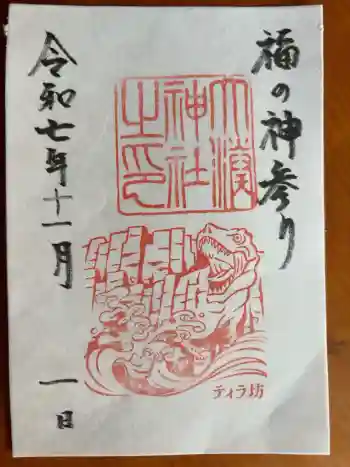 福の神参り
大湊神社之印
ティラ坊
令和七年十一月一日